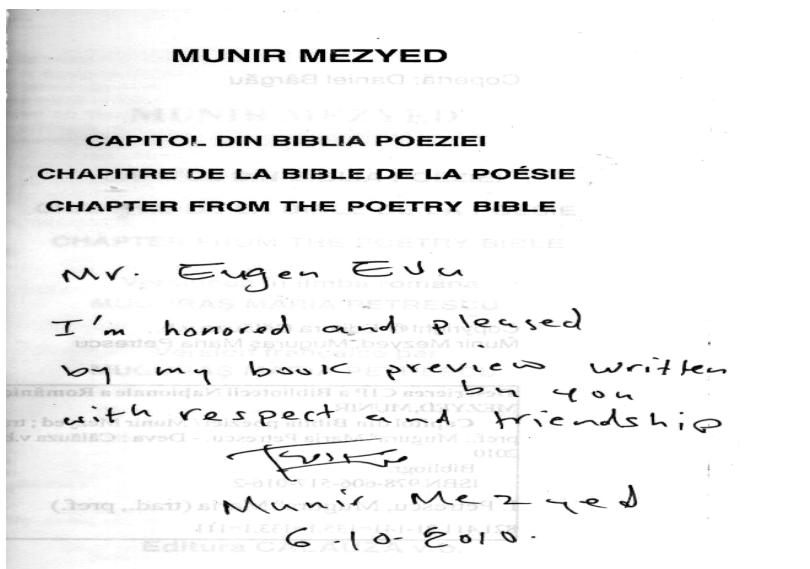 MUNIR MEZYED
CAPITOL DIN BIBLIA POEZIEI
CHAPITRE DE LA BIBLE DE LA POÉSIE
CHAPTER FROM THE POETRY BIBLE
Mr. Eugen Evu
I'm honored and pleased
by my book preview written
by you
with respect and friendship
Munir Mezyed
6-10-2010.